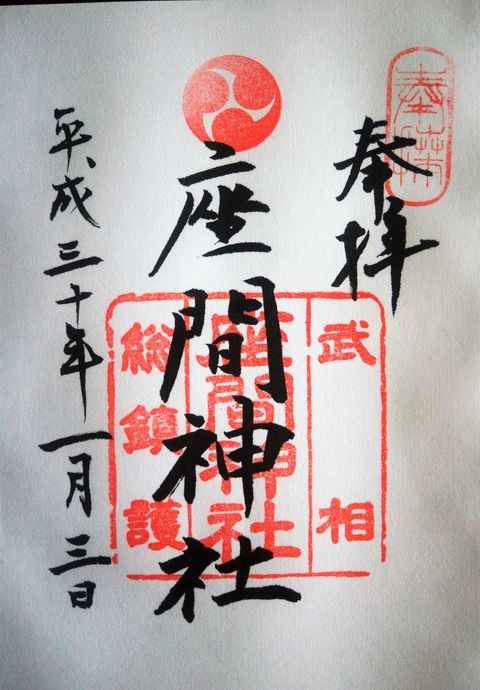 奉拝
奉拝
武相
座間神社
座間神社
総鎮護
平成三十年一月三日